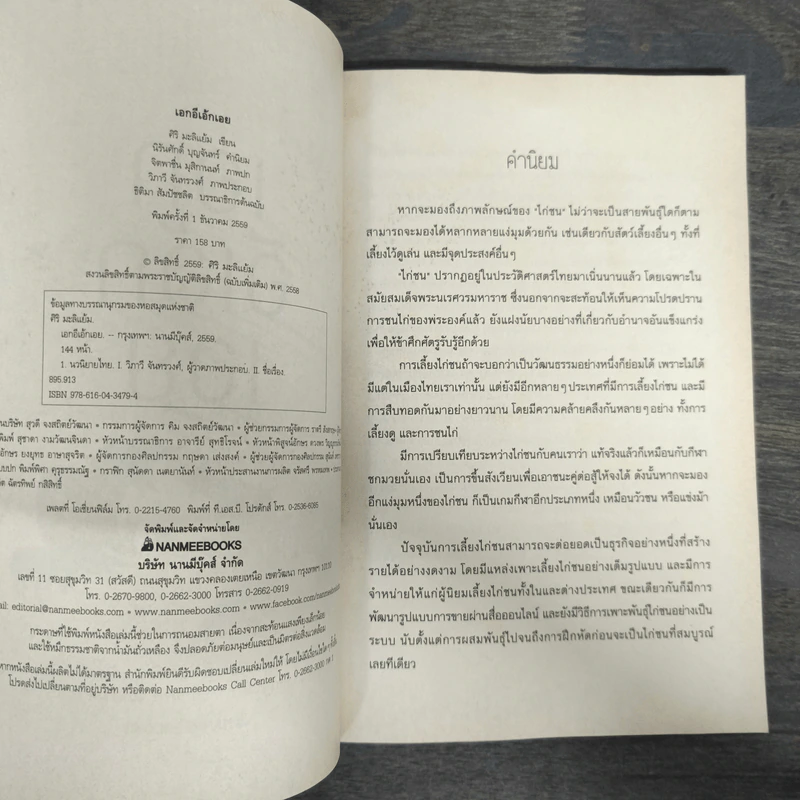 เอกอีเอ้กเอย
ศิริ มะลิแย้ม เขียน
นิรันศักดิ์ บุญจันทร์ คำนิยม
จิตพาชื่น มุสิกานนท์ ภาพปก
วิภาวี จันทรวงศ์ ภาพประกอบ
ธิติมา สัมปัชชลิต บรรณาธิการต้นฉบับ
พิมพ์ครั้งที่ 1 ธันวาคม 2559
ราคา 158 บาท
© ลิขสิทธิ์ 2559: ศิริ มะลิแย้ม
สงวนลิขสิทธิ์ตามพระราชบัญญัติลิขสิทธิ์ (ฉบับเพิ่มเติม) พ.ศ. 2558
ข้อมูลทางบรรณานุกรมของหอสมุดแห่งชาติ
ศิริ มะลิแย้ม.
เอกอีเอ้กเอย. -- กรุงเทพฯ: นานมีบุ๊คส์, 2559.
144 หน้า.
1. นวนิยายไทย. I. วิภาวี จันทรวงศ์, ผู้วาดภาพประกอบ. II. ชื่อเรื่อง
895.913
ISBN 978-616-04-3479-4
สุวดี จงสถิตย์วัฒนา • กรรมการผู้จัดการ คิม จงสถิตย์วัฒนา • ผู้ช่วยกรรมการผู้จัดการ
สุชาดา งามวัฒนจินดา • หัวหน้าบรรณาธิการ อาจารีย์ สุทธิโรจน์ • หัวหน้าพิสูจน์อักษร
ยงยุทธ อาษาสุจริต • ผู้จัดการกองศิลปกรรม กฤษดา เส่งลงค์ • ผู้ช่วยผู้จัดการกองศิลปกรรม
พิมพ์พิศา คุรุธรรมณัฐ • กราฟิก สุนัดดา เนตยานันท์ • หัวหน้าประสานงานการผลิต
ฉัตรทิพย์ กสิสิทธิ์
เพลตที่ โอเชี่ยนฟิล์ม โทร. 0-2215-4760 พิมพ์ที่ ที.เอส.บี. โปรดักส์ โทร. 0-2536-6065
จัดพิมพ์และจัดจำหน่ายโดย
NANMEEBOOKS
บริษัท นานมีบุ๊คส์ จำกัด
เลขที่ 11 ซอยสุขุมวิท 31 (สวัสดี) ถนนสุขุมวิท แขวงคลองเตยเหนือ เขตวัฒนา กรุงเทพฯ 10110
โทร. 0-2670-9800, 0-2662-3000 โทรสาร 0-2662-0919
editorial@nanmeebooks.com • www.nanmeebooks.com • www.facebook.com/nanmeebooks
กระดาษที่ใช้พิมพ์หนังสือเล่มนี้ช่วยในการถนอมสายตา เนื่องจากสะท้อนแสงเพียงเล็กน้อย
และใช้หมึกธรรมชาติจากน้ำมันถั่วเหลือง จึงปลอดภัยต่อมนุษย์และเป็นมิตรต่อสิ่งแวดล้อม
หากหนังสือเล่มนี้ผลิตไม่ได้มาตรฐาน สำนักพิมพ์ยินดีรับผิดชอบเปลี่ยนเล่มใหม่ให้ โดยไม่มีเงื่อนไขใดๆ ทั้งสิ้น
โปรดส่งไปเปลี่ยนตามที่อยู่บริษัท หรือติดต่อ Nanmeebooks Call Center โทร. 0-2662-3000 กด 1
คำนิยม
หากจะมองถึงภาพลักษณ์ของ "ไก่ชน" ไม่ว่าจะเป็นสายพันธุ์ใดก็ตาม
สามารถจะมองได้หลากหลายแง่มุมด้วยกัน เช่นเดียวกับสัตว์เลี้ยงอื่นๆ ทั้งที่
เลี้ยงไว้ดูเล่น และมีจุดประสงค์อื่นๆ
"ไก่ชน" ปรากฏอยู่ในประวัติศาสตร์ไทยมาเนิ่นนานแล้ว โดยเฉพาะใน
สมัยสมเด็จพระนเรศวรมหาราช ซึ่งนอกจากจะสะท้อนให้เห็นความโปรดปราน
การชนไก่ของพระองค์แล้ว ยังแฝงนัยบางอย่างที่เกี่ยวกับอำนาจอันแข็งแกร่ง
เพื่อให้ข้าศึกศัตรูรับรู้อีกด้วย
การเลี้ยงไก่ชนถ้าจะบอกว่าเป็นวัฒนธรรมอย่างหนึ่งก็ย่อมได้ เพราะไม่ได้
มีแต่ในเมืองไทยเราเท่านั้น แต่ยังมีอีกหลายๆ ประเทศที่มีการเลี้ยงไก่ชน และมี
การสืบทอดกันมาอย่างยาวนาน โดยมีความคล้ายคลึงกันหลายๆ อย่าง ทั้งการ
เลี้ยงดู และการชนไก่
มีการเปรียบเทียบระหว่างไก่ชนกับคนเราว่า แท้จริงแล้วก็เหมือนกับกีฬา
ชกมวยนั่นเอง เป็นการขึ้นสังเวียนเพื่อเอาชนะคู่ต่อสู้ให้จงได้ ดังนั้นหากจะมอง
อีกแง่มุมหนึ่งของไก่ชน ก็เป็นเกมกีฬาอีกประเภทหนึ่ง เหมือนวัวชน หรือแข่งม้า
นั่นเอง
ปัจจุบันการเลี้ยงไก่ชนสามารถจะต่อยอดเป็นธุรกิจอย่างหนึ่งที่สร้าง
รายได้อย่างงดงาม โดยมีแหล่งเพาะเลี้ยงไก่ชนอย่างเต็มรูปแบบ และมีการ
จำหน่ายให้แก่ผู้นิยมเลี้ยงไก่ชนทั้งในและต่างประเทศ ขณะเดียวกันก็มีการ
พัฒนารูปแบบการขายผ่านสื่อออนไลน์ และยังมีวิธีการเพาะพันธุ์ไก่ชนอย่างเป็น
ระบบ นับตั้งแต่การผสมพันธุ์ไปจนถึงการฝึกหัดก่อนจะเป็นไก่ชนที่สมบูรณ์
เลยทีเดียว